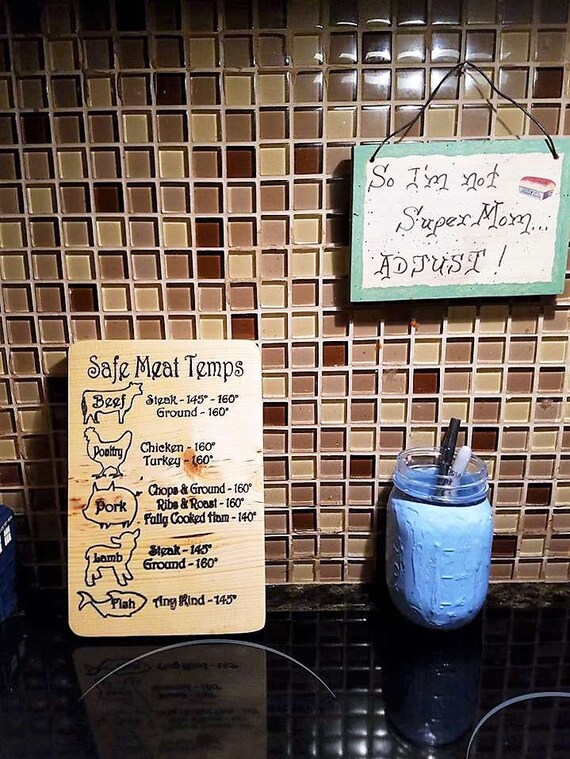 So I'm not
SuperMom...
ADJUST!
Safe Meat Temps
Beef
Steak - 145° - 160°
Ground - 160°
Poultry
Chicken - 160°
Turkey - 160°
Pork
Chops & Ground - 160°
Ribs & Roast - 160°
Fully Cooked Ham - 140°
Lamb
Steak - 145°
Ground - 160°
Fish
Any Kind - 145°